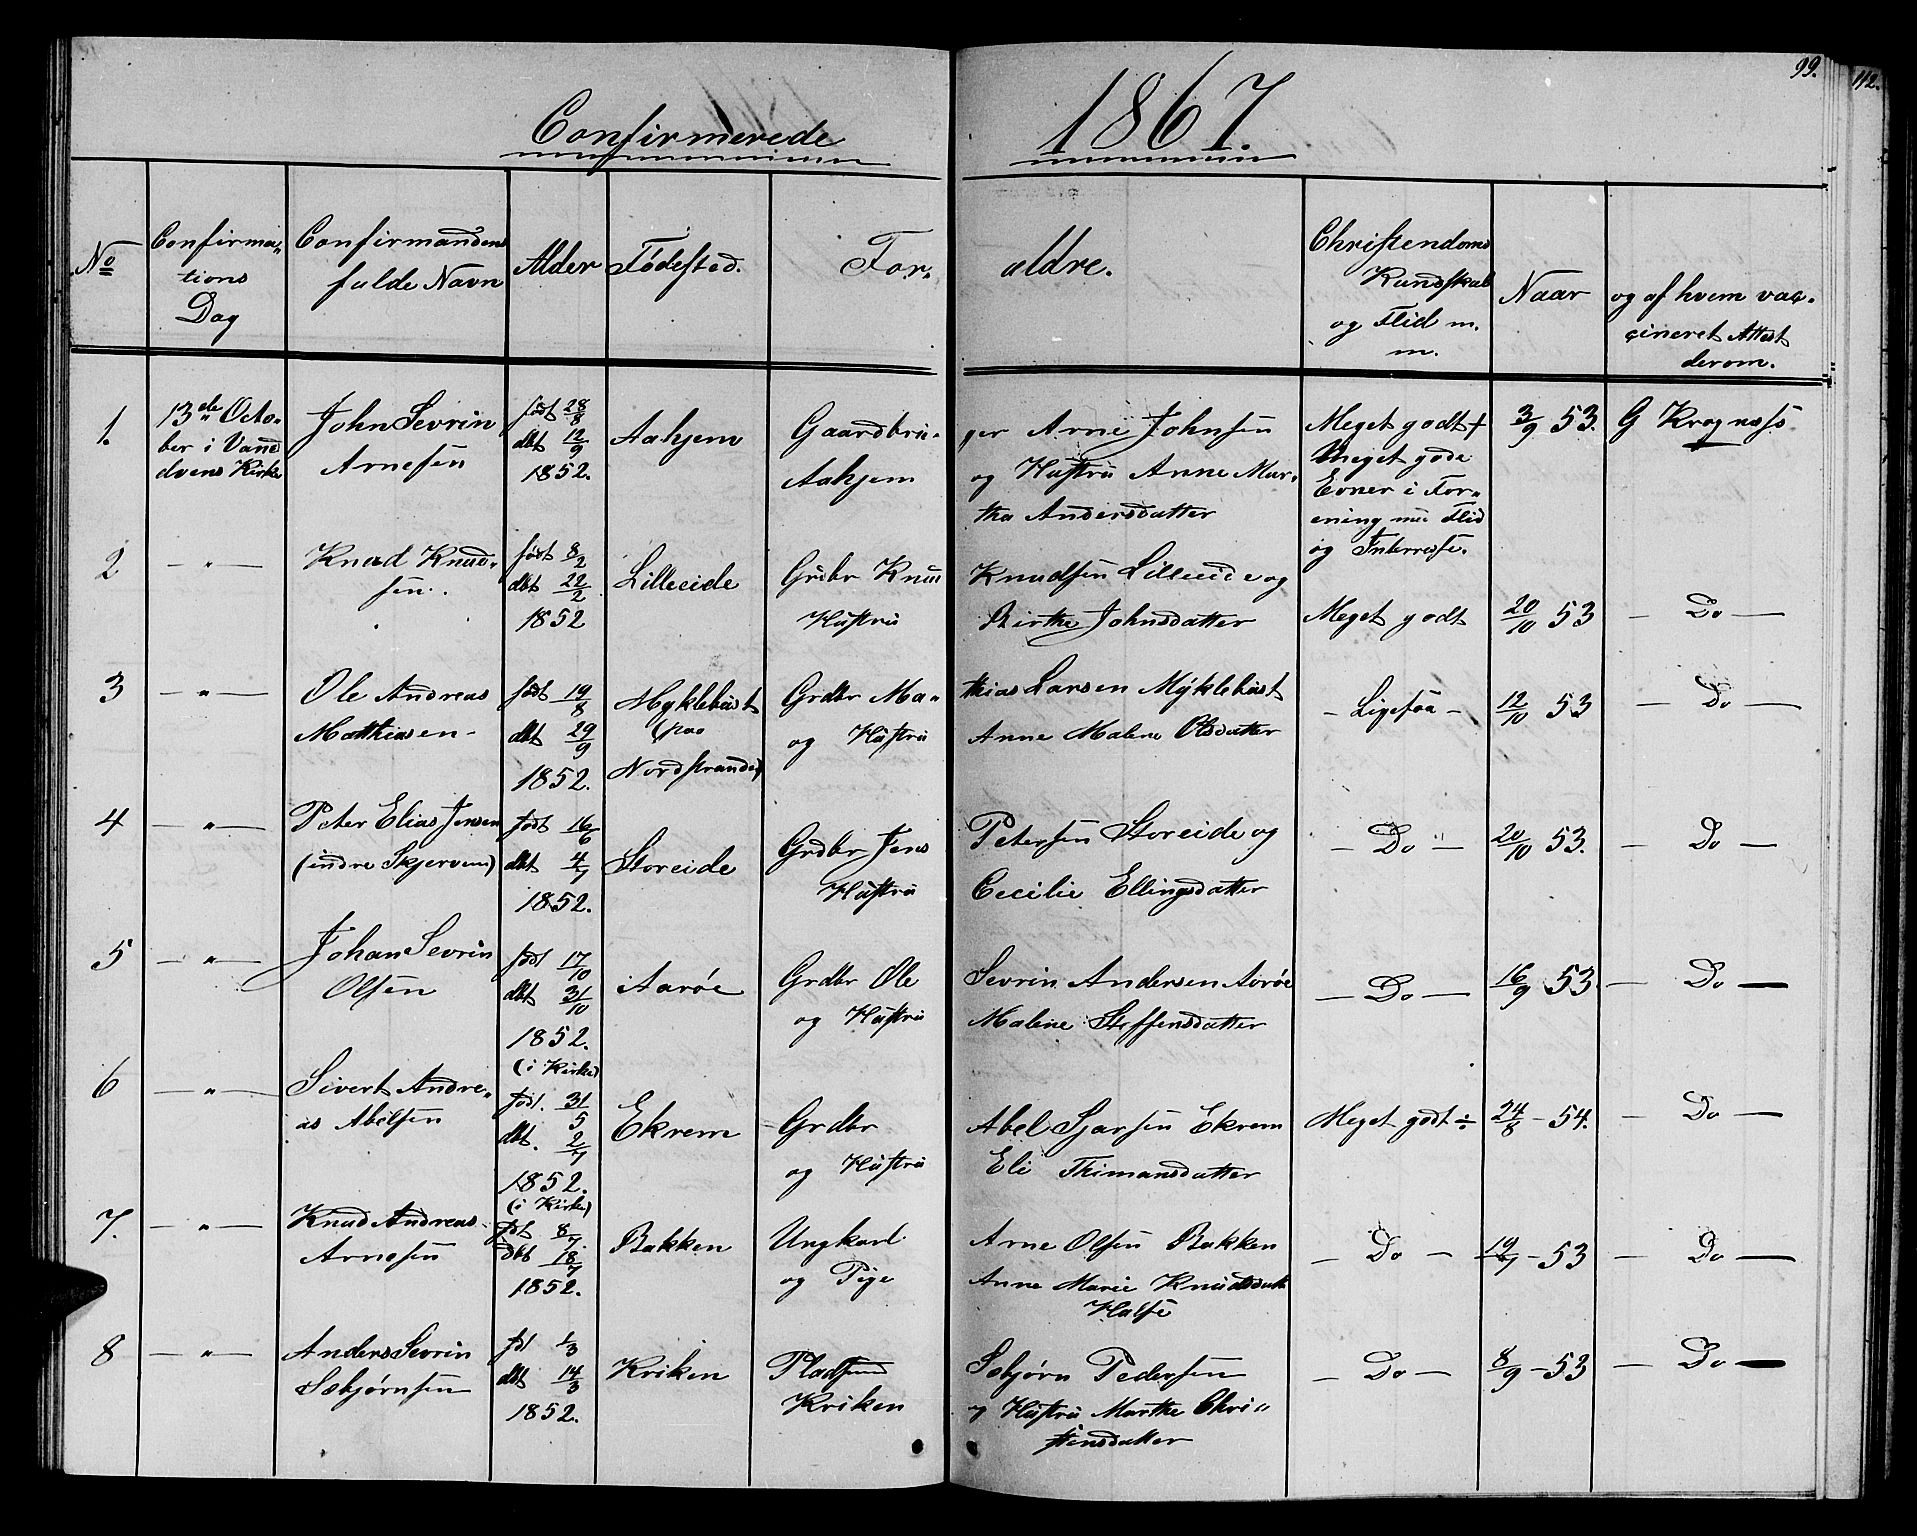 99.
112.
Confirmerede
1867.
No
Confirma„
tions
Dag
Confirmandens
fulde Navn
Alder
Födested.
For„
ældre.
Christendoms
Kundskab
og Flid m.
m.
Naar
og af hvem vac„
cineret Attest
derom.
1.
13de Octo„
ber i Vand
dvens Kirke
John Sevrin
Arnesen
födt 28/8
dbt 12/9
1852.
Aahjem
Gaardbru„
Aahjem
ger Arne Johnsen
og Hustru Anne Mar„
tha Andersdatter
Meget godt +
Meget gode
Evner i For„
ening me Flid
og Interresse.
3/9 53.
G Kragnæss
2
— „ —
Knud Knud„
sen.
födt 8/2
dbt 22/2
1852
Lilleeide
Grdbr Knu
Hustru
Knudsen Lilleeide og
Birthe Johnsdatter
Meget godt
20/10 53
— Do —
3
— „ —
Ole Andreas
Matthiasen
födt 19/8
dbt 29/9
1852.
Myklebust
(paa
Nordstranden)
Grdbr Ma„
og Hustru
thias Larsen Myklebust
Anne Malene Olsdatter
– Ligesaa –
12/10 53
— Do —
4
— „ —
Peter Elias Jensen
(indre Skjervem)
födt 16/6
dbt 4/7
1852.
Storeide
Grdbr Jens
Hustru
Petersen Storeide og
Cecilie Ellingsdatter
— Do —
20/10 53.
— Do —
5
— „ —
Johan Sevrin
Olsen
födt 17/10
dbt 31/10
1852.
(i Kirke)
Aaröe
Grdbr Ole
og Hustru
Sevrin Andersen Aaröe
Malene Steffensdatter
— Do —
16/9 53.
— Do —
6
— „ —
Sivert Andre„
as Abelsen
födt. 31/5
dbt. 2/7
1852.
(i Kirke)
Ekrem
Grdbr
og Hustru
Abel Sjursen Ekrem
Eli Thimansdatter
Meget godt ÷
24/8 – 54.
— Do —
7.
— „ —
Knud Andreas
Arnesen
fdt 8/7
dbt 18/7
1852.
Bakken
Ungkarl
og Pige
Arne Olsen Bakken
Anne Marie Knudsdatt
Halse
— Do —
19/7 – 53
— Do —
8
— „ —
Anders Sevrin
Esbjørnsen
fdt 1/3
dbt 14/3
1852.
Kriken
Pladsmd
Kriken
Esbjørn Pedersen
og Hustru Marthe Chri„
stensdatter
— Do —
8/9 – 53
— Do —